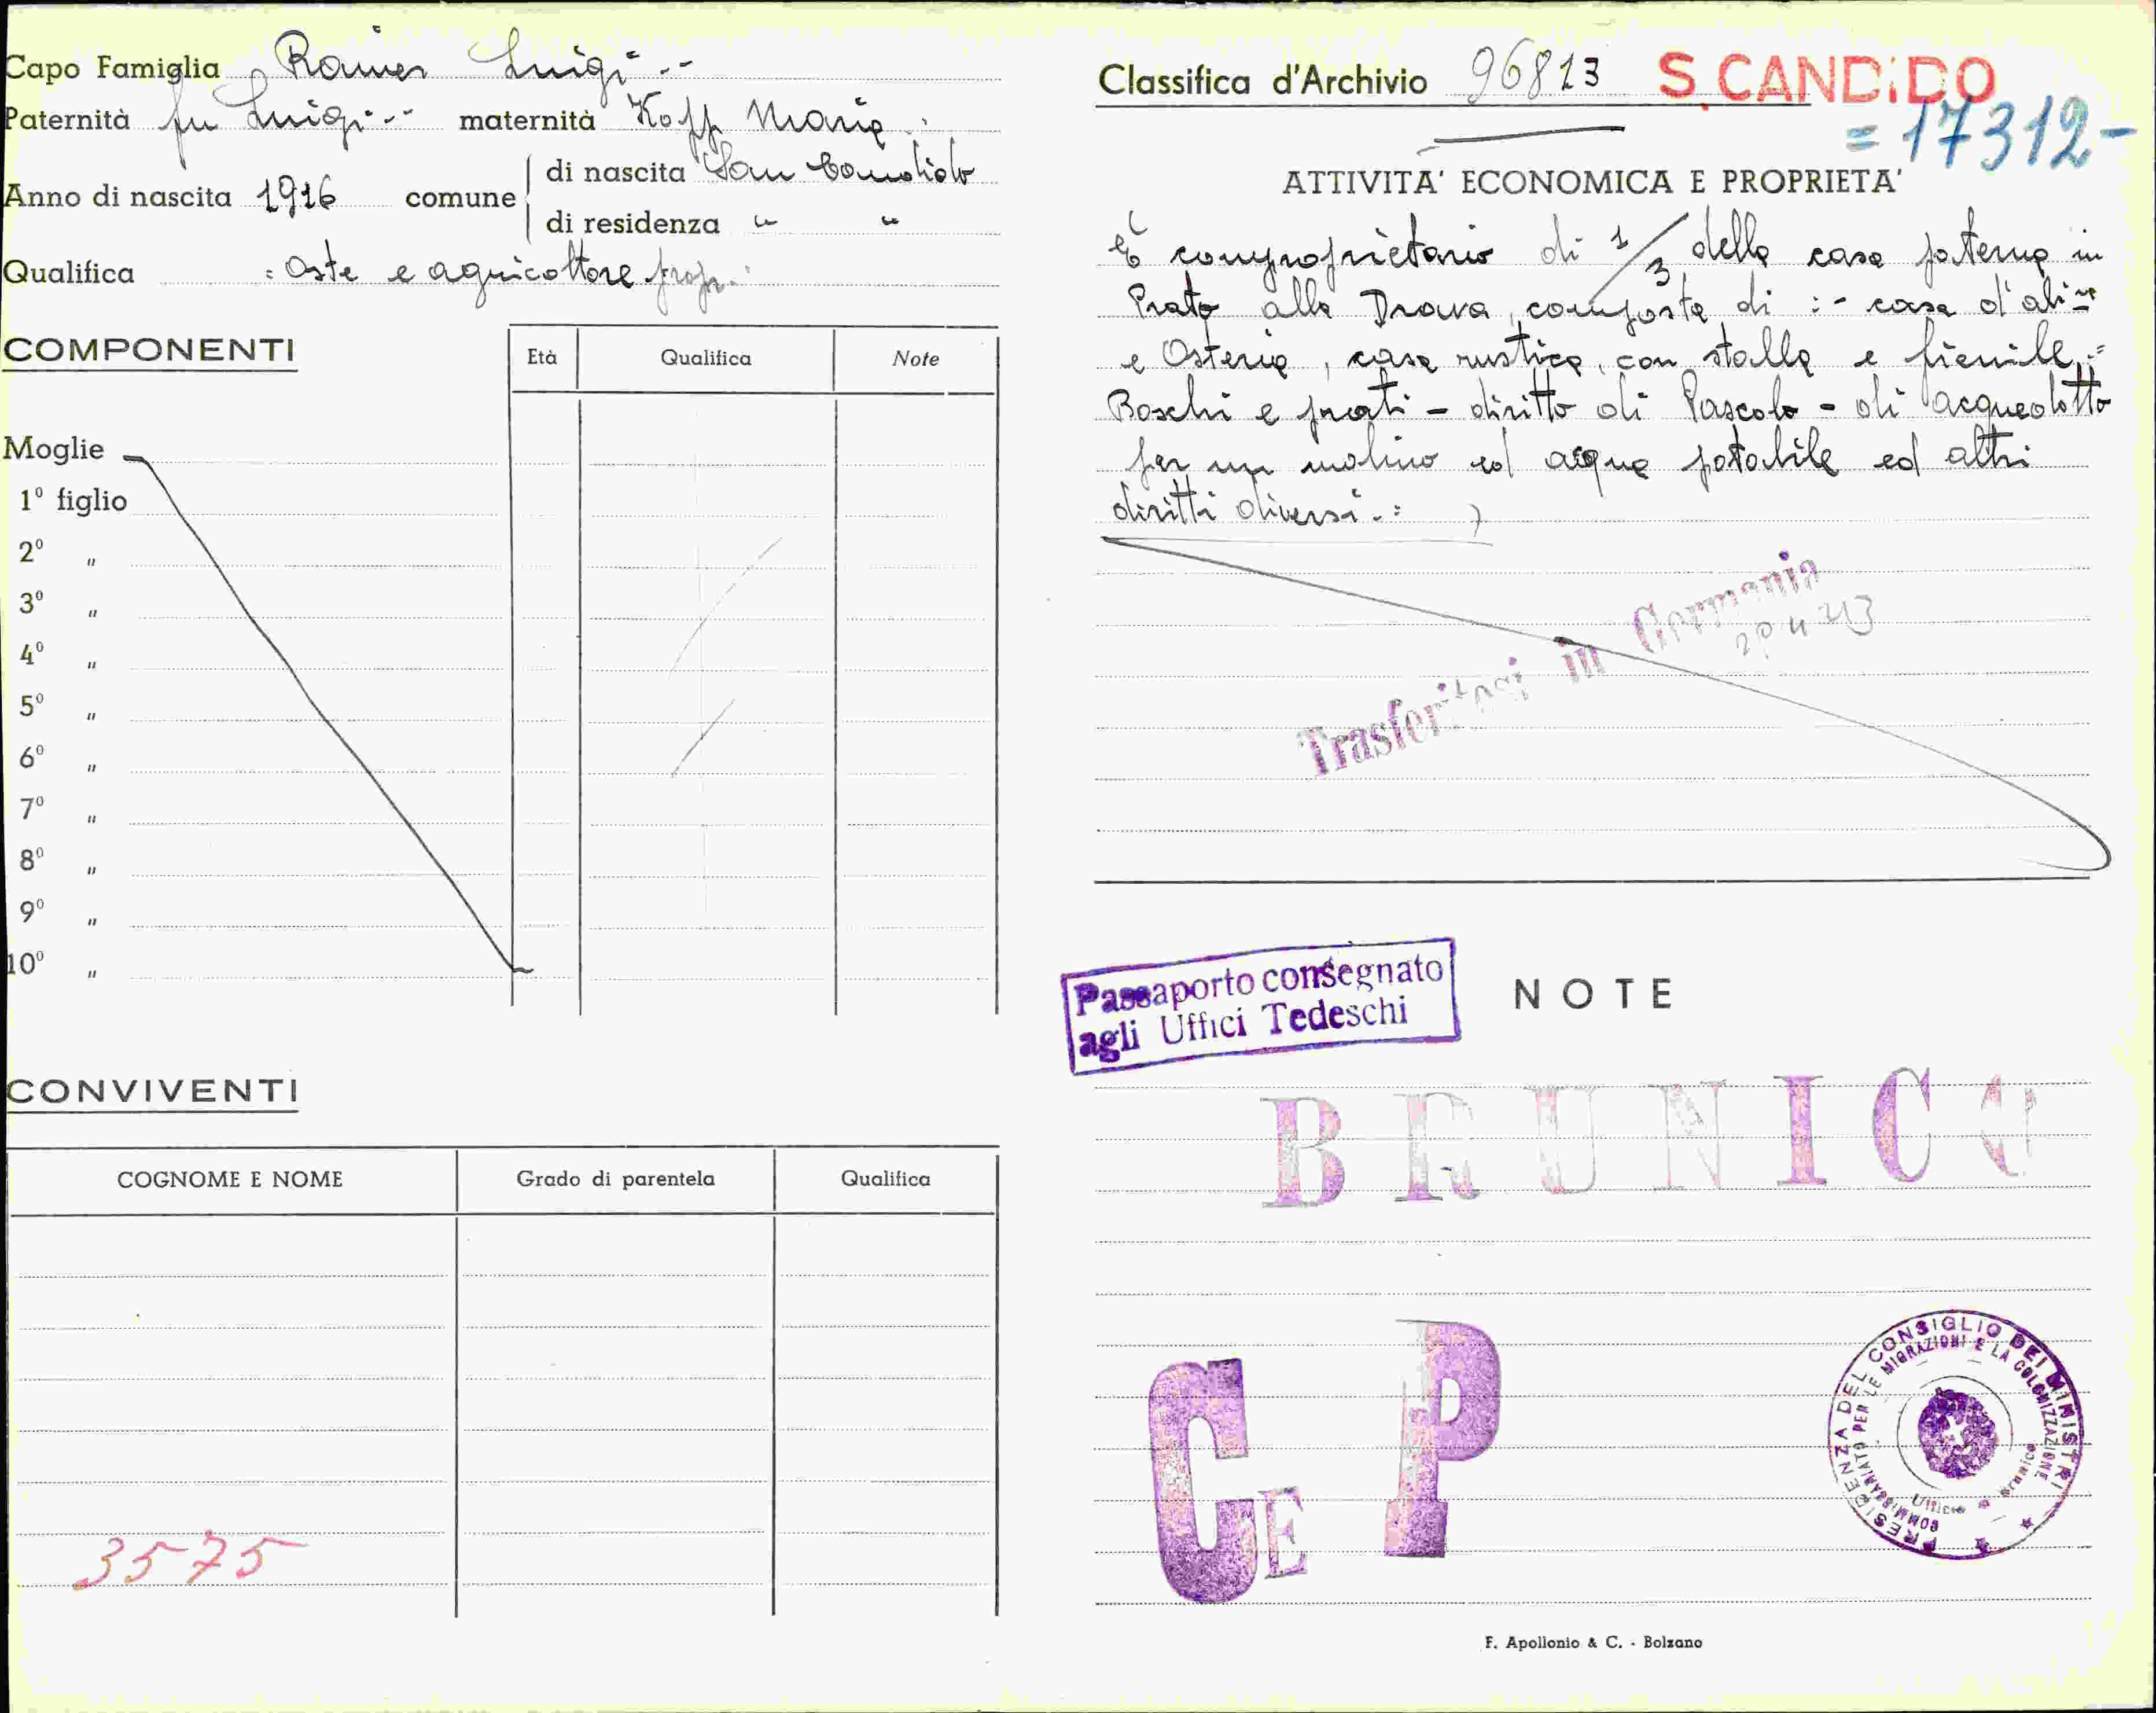 Capo Famiglia Rainer Luigi
Paternità fu Luigi maternità Kopp Maria
Anno di nascita 1916 comune
di nascita San Candido
di residenza " "
Qualifica Oste e agricoltore propr.
COMPONENTI
Età Qualifica Note
Moglie
1º figlio
2º "
3º "
4º "
5º "
6º "
7º "
8º "
9º "
10º "
CONVIVENTI
COGNOME E NOME Grado di parentela Qualifica
3575
Classifica d'Archivio 96813 S. CANDiDO
= 17312-
ATTIVITA' ECONOMICA E PROPRIETA'
E' comproprietario di 1/3 della casa paterna in
Prato alla Drava, composta di : - casa d'
e Osteria, casa rustica, con stalla e fienile
Boschi e prati - diritto di Pascolo - di acquedotto
per un molino ed acqua potabile ed altri
diritti diversi.
Trasferitosi in Germania
43
Passaporto consegnato
agli Uffici Tedeschi
NOTE
BRUNICO
C E P
PRESIDENZA DEL CONSIGLIO DEI MINISTRI
COMMISSARIATO PER LE MIGRAZIONI E LA COLONIZZAZIONE
Ufficio di Brunico
F. Apollonio & C. - Bolzano